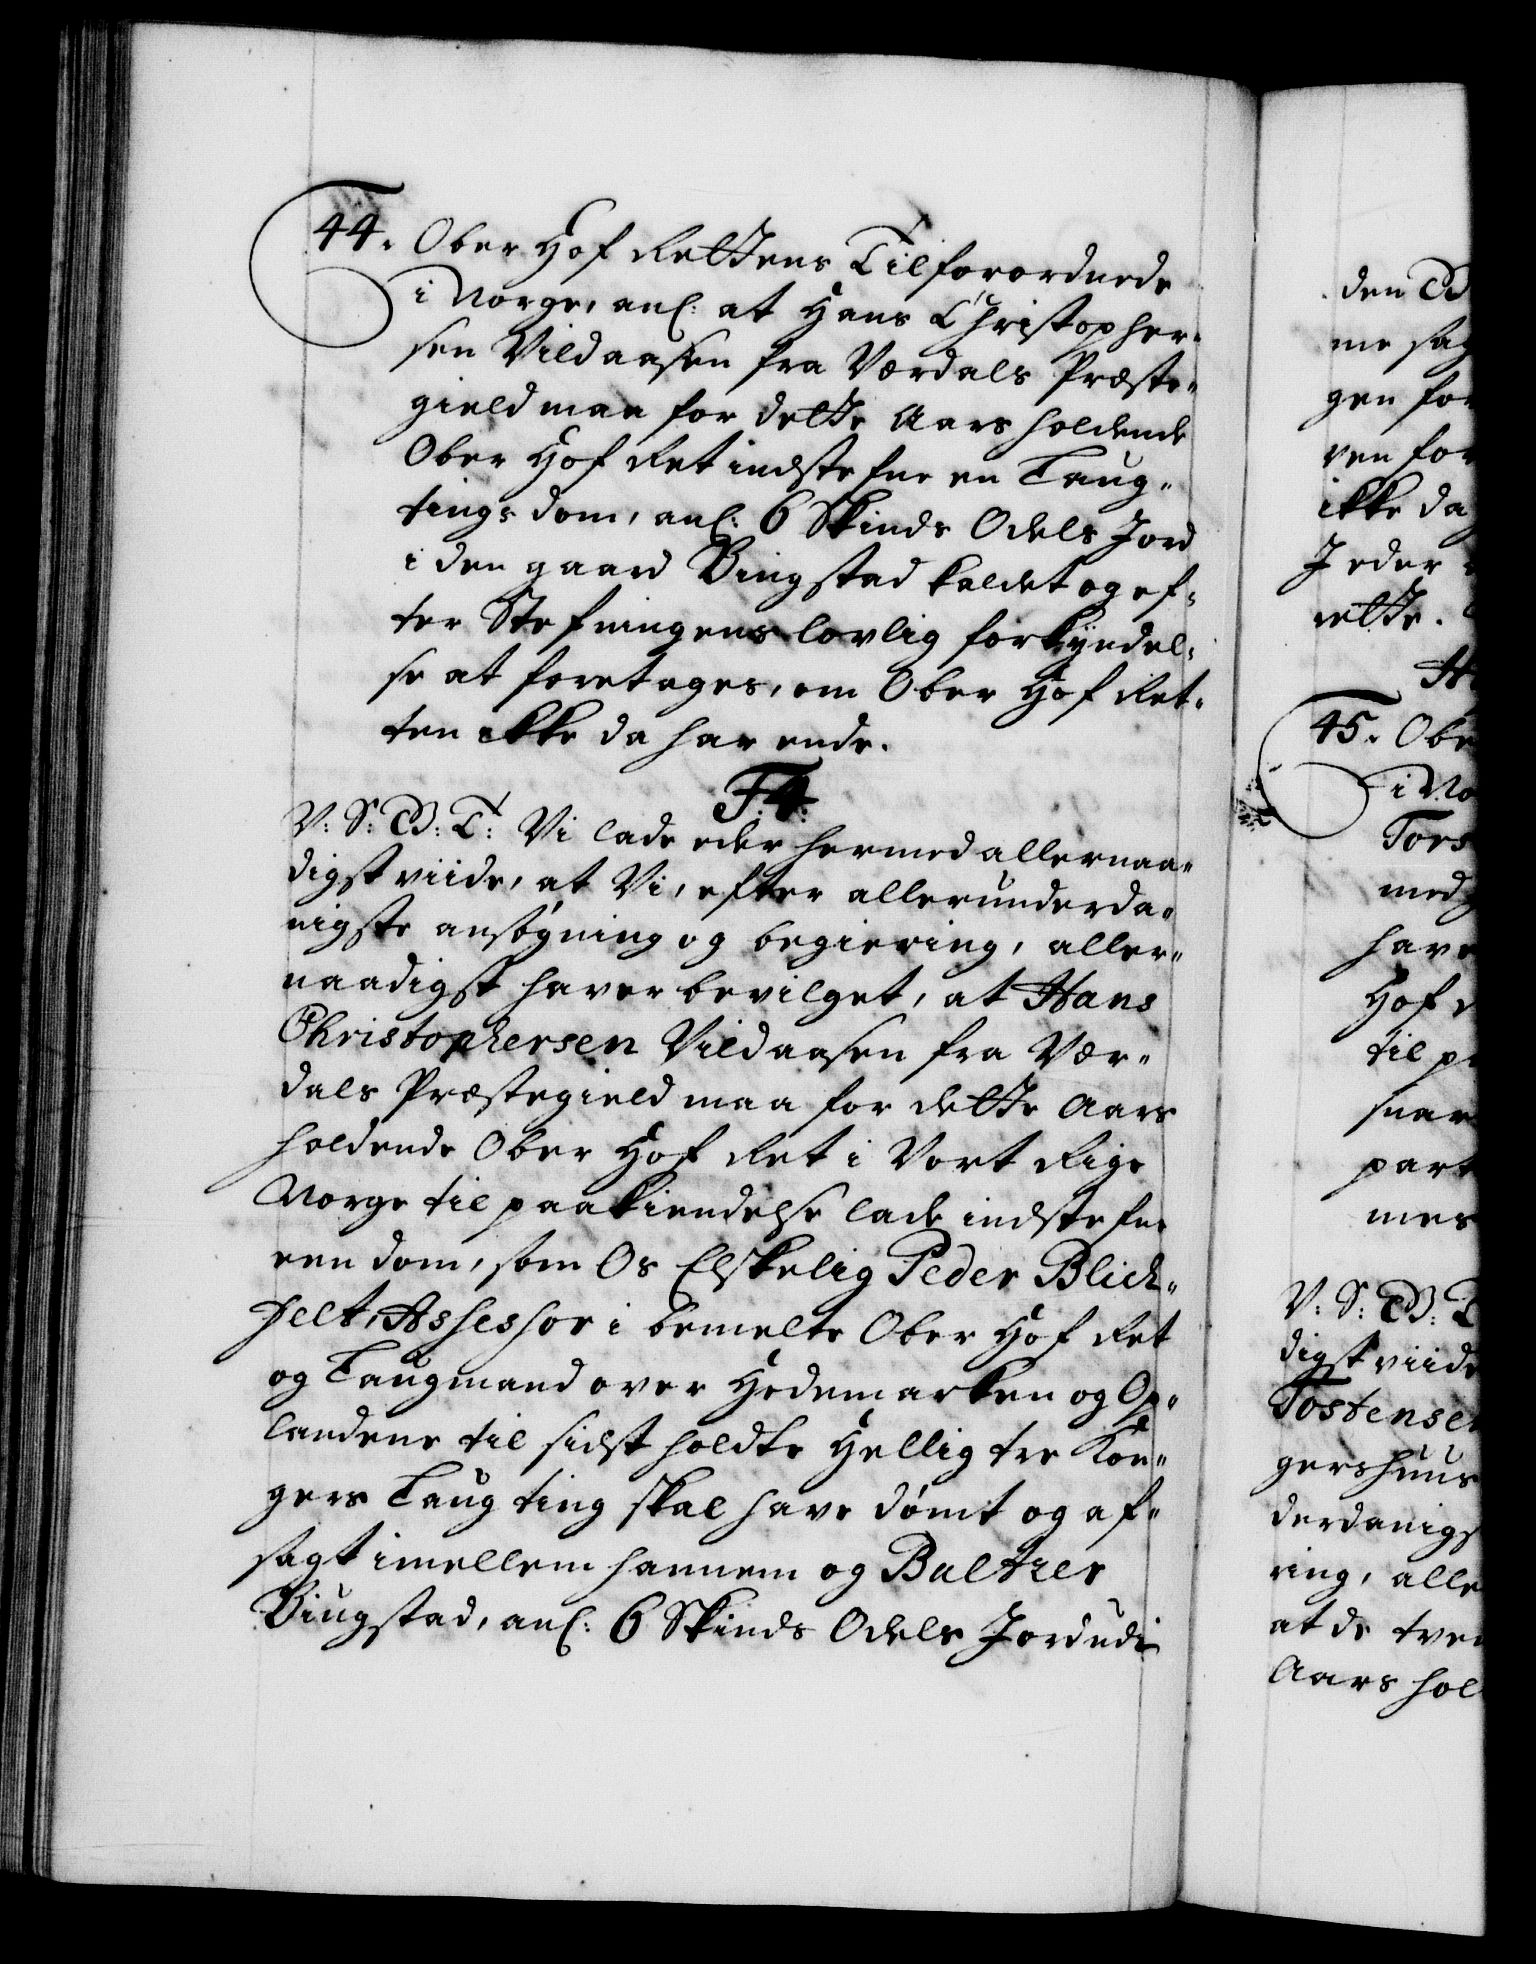 44. Ober Hof Rettens Tilforordnede
i Norge, anl: at Hans Christopher-
sen Vildaasen fra Værdals Præste-
gield maa for dette Aars holdende
Ober Hof Ret indstefne en Laug-
tings dom, anl: 6 Skinds Odels Jord
i den gaard Bingstad kaldet og ef-
ter Stefningens lovlig forkyndel-
se at foretages, om Ober Hof Ret-
ten ikke da har ende.
F:4.
V: S: G: T: Vi lade eder hermed allernaa-
digst viide, at Vi, efter allerunderda-
nigste ansøgning og begiering, aller-
naadigst haver bevilget, at Hans
Christophersen Vildaasen fra Vær-
dals Præstegield maa for dette Aars
holdende Ober Hof Ret i Vort Rige
Norge til paakiendelse lade indstefne
een dom, som Os Elskelig Peder Blich-
felt, Assessor i bemelte Ober Hof Ret
og Laugmand over Hedemarken og Op-
landene til sidst holdte Hellig tre Kon-
gers Laug ting skal have dømt og af-
sagt imellem hannem og Baltzer
Bingstad, anl: 6 Skinds Odels Jord udi
den
me sag
gen for
ven for
ikke da
I eder
rette.
45. Obe
i No
Tors
med
have
Hof
til p
snar
part
mes
V: S: G: T
digst viide
Tostensen
gershuus
derdanigst
ring, alle
at de tven
Aars hol